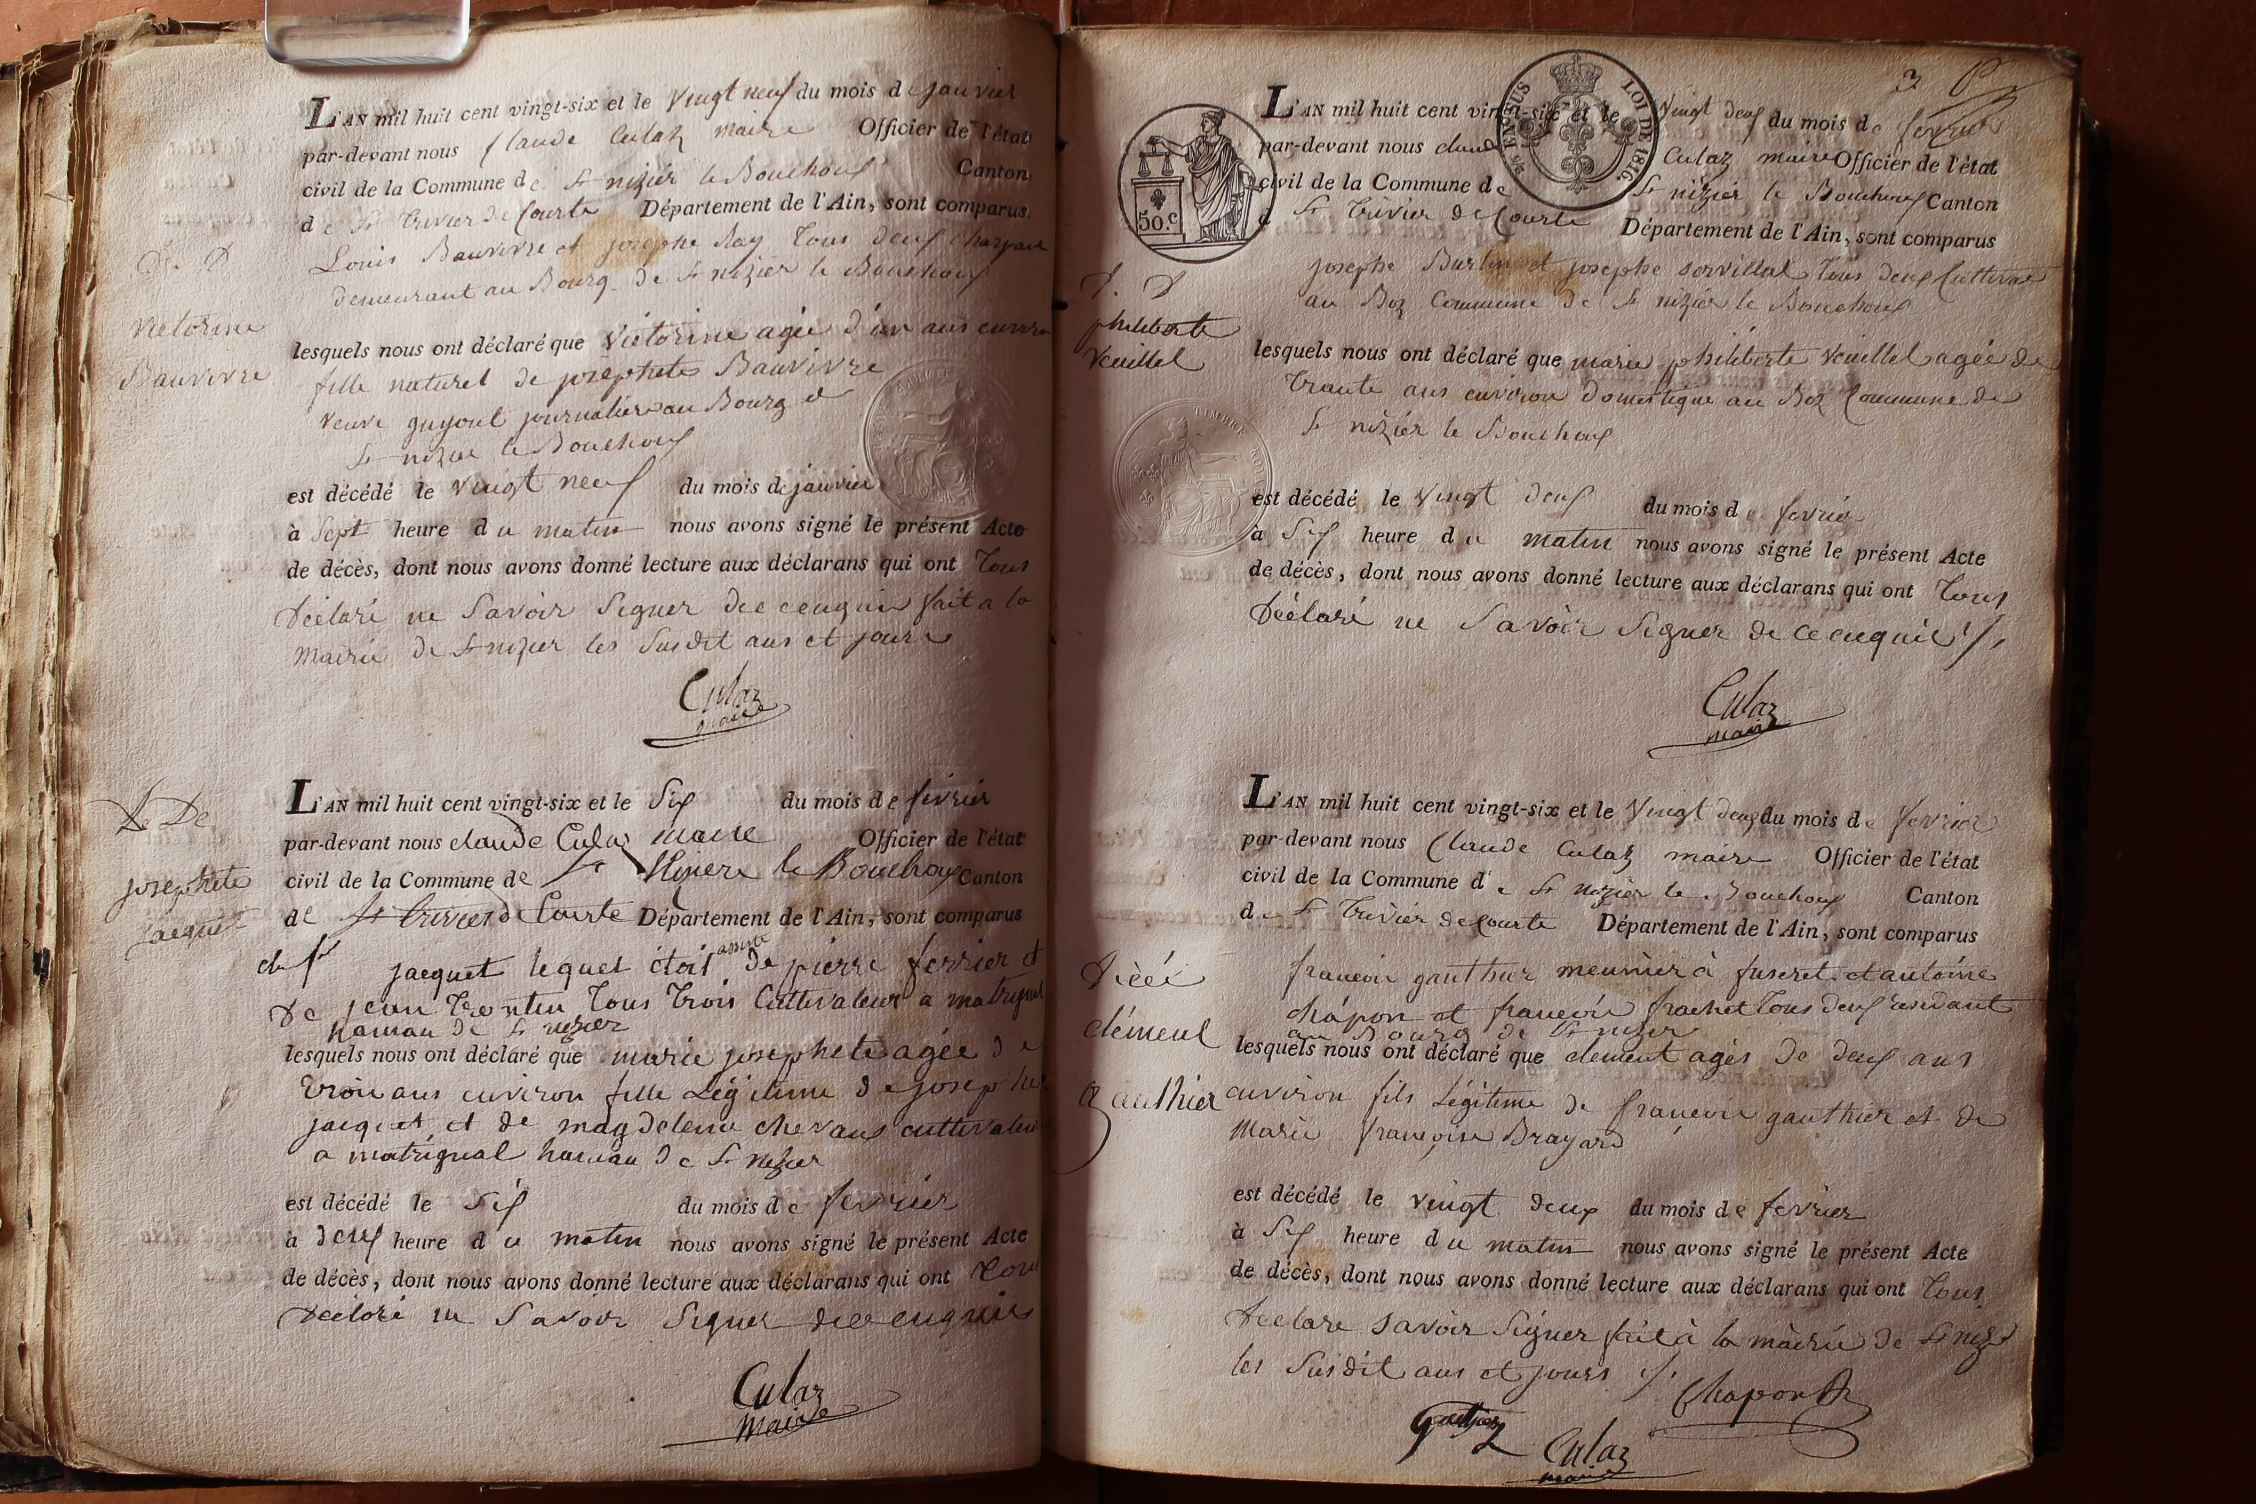 L'AN mil huit cent vingt-six et le vingt neuf du mois de janvier
par-devant nous Claude Culaz maire Officier de l'état
civil de la Commune de St nizier le Bouchoux Canton
de St trivier de Courte Département de l'Ain, sont comparus
Louis Bauvivre et josephe Ray tous deux
demeurant au Bourg de St nizier le Bouchoux
lesquels nous ont déclaré que Victorine agée d'un ans environ
fille naturel de josephete Bauvivre
veuve guyout journalier au Bourg d
St nizier le Bouchoux
est décédé le vingt neuf du mois de janvier
à Sept heure du matin nous avons signé le présent Acte
de décès, dont nous avons donné lecture aux déclarans qui ont tous
Déclaré ne Savoir Signer de ce enquis fait a la
Mairie de St nizier les Susdit ans et jours
Culaz
maire
D
victorine
Bauvivre
L'AN mil huit cent vingt-six et le Six du mois de fevrier
par-devant nous claude Culaz maire Officier de l'état
civil de la Commune de St Nizier le Bouchoux Canton
de St trivier de Courte Département de l'Ain, sont comparus
jacquet lequel étoit assisté de pierre ferrier et
De jean trontin tous trois Cultivateur a matrignal
hamau de St nizier
lesquels nous ont déclaré que marie josephete agée de
trois ans environ fille Légitime de josephe
jacquet et de magdelene chevaux cultivateur
a matrignal hamau de St nizier
est décédé le Six du mois de fevrier
à deux heure du matin nous avons signé le présent Acte
de décès, dont nous avons donné lecture aux déclarans qui ont tous
Déclaré ne Savoir Signer de ce enquis
Culaz
Maire
De
josephete
jacquet
3
50.c
LOI DE 1816.
L'AN mil huit cent vingt-six et le vingt deux du mois de fevrier
par-devant nous claude Culaz maire Officier de l'état
civil de la Commune de St nizier le Bouchoux Canton
d St trivier de Courte Département de l'Ain, sont comparus
josephe Burlin et josephe servillat tous deux Cultivat
au Boz Commune de St nizier le Bouchoux
lesquels nous ont déclaré que marie philiberte veuillet agée de
trante ans environ Domestique au Boz Commune de
St nizier le Bouchoux
est décédé le vingt deux du mois de fevrier
à Six heure du matin nous avons signé le présent Acte
de décès, dont nous avons donné lecture aux déclarans qui ont tous
Déclaré ne Savoir Signer de ce enquis
Culaz
maire
D
philiberte
veuillet
L'AN mil huit cent vingt-six et le vingt deux du mois de fevrier
par-devant nous Claude Culaz maire Officier de l'état
civil de la Commune de St nizier le Bouchoux Canton
de St trivier de Courte Département de l'Ain, sont comparus
francois gauthier meunier à fuseret et antoine
chapon et francois frachet tous deux residant
au Bourg de St nizier
lesquels nous ont déclaré que clement agés de deux ans
environ fils Légitime de francois gauthier et de
Marie françoise Brayard
est décédé le vingt deux du mois de fevrier
à Six heure du matin nous avons signé le présent Acte
de décès, dont nous avons donné lecture aux déclarans qui ont tous
Declare savoir Signer fait à la mairie de St nizier
les Susdit ans et jours
Chapon
gauthier
Culaz
maire
clément
gauthier